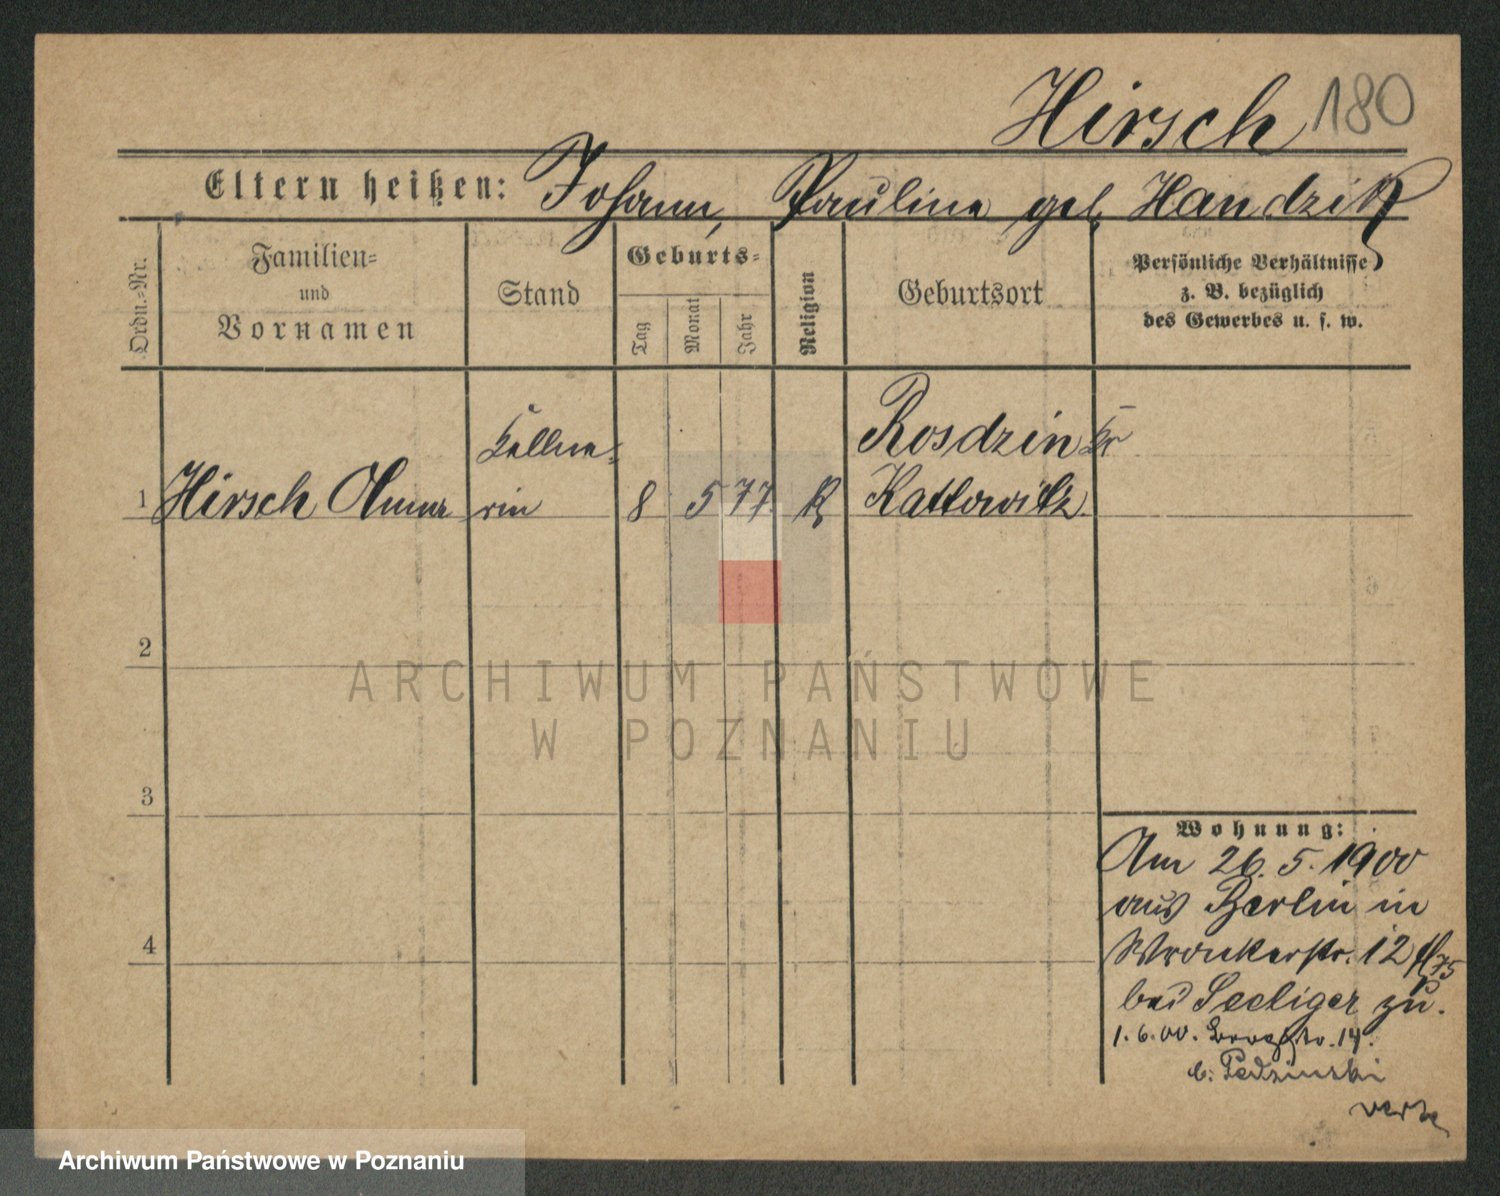 Hirsch 180
Eltern heißen: Johann, Pauline geb. Handzik
Ordn.=Nr.
Familien=
und
Vornamen
Stand
Geburts=
Tag
Monat
Jahr
Religion
Geburtsort
Persönliche Verhältnisse
z. B. bezüglich
des Gewerbes u. s. w.
Kellne=
Rosdzin Kr
1 Hirsch Anna rin 8 5 77 K Kattowitz.
2
3
4
Wohnung:
Am 26. 5. 1900
aus Berlin in
Wronkerstr. 12
75
bei Seeliger zu.
1. 6. 00. 14.
b.
ARCHIWUM PAŃSTWOWE
W POZNANIU
Archiwum Państwowe w Poznaniu